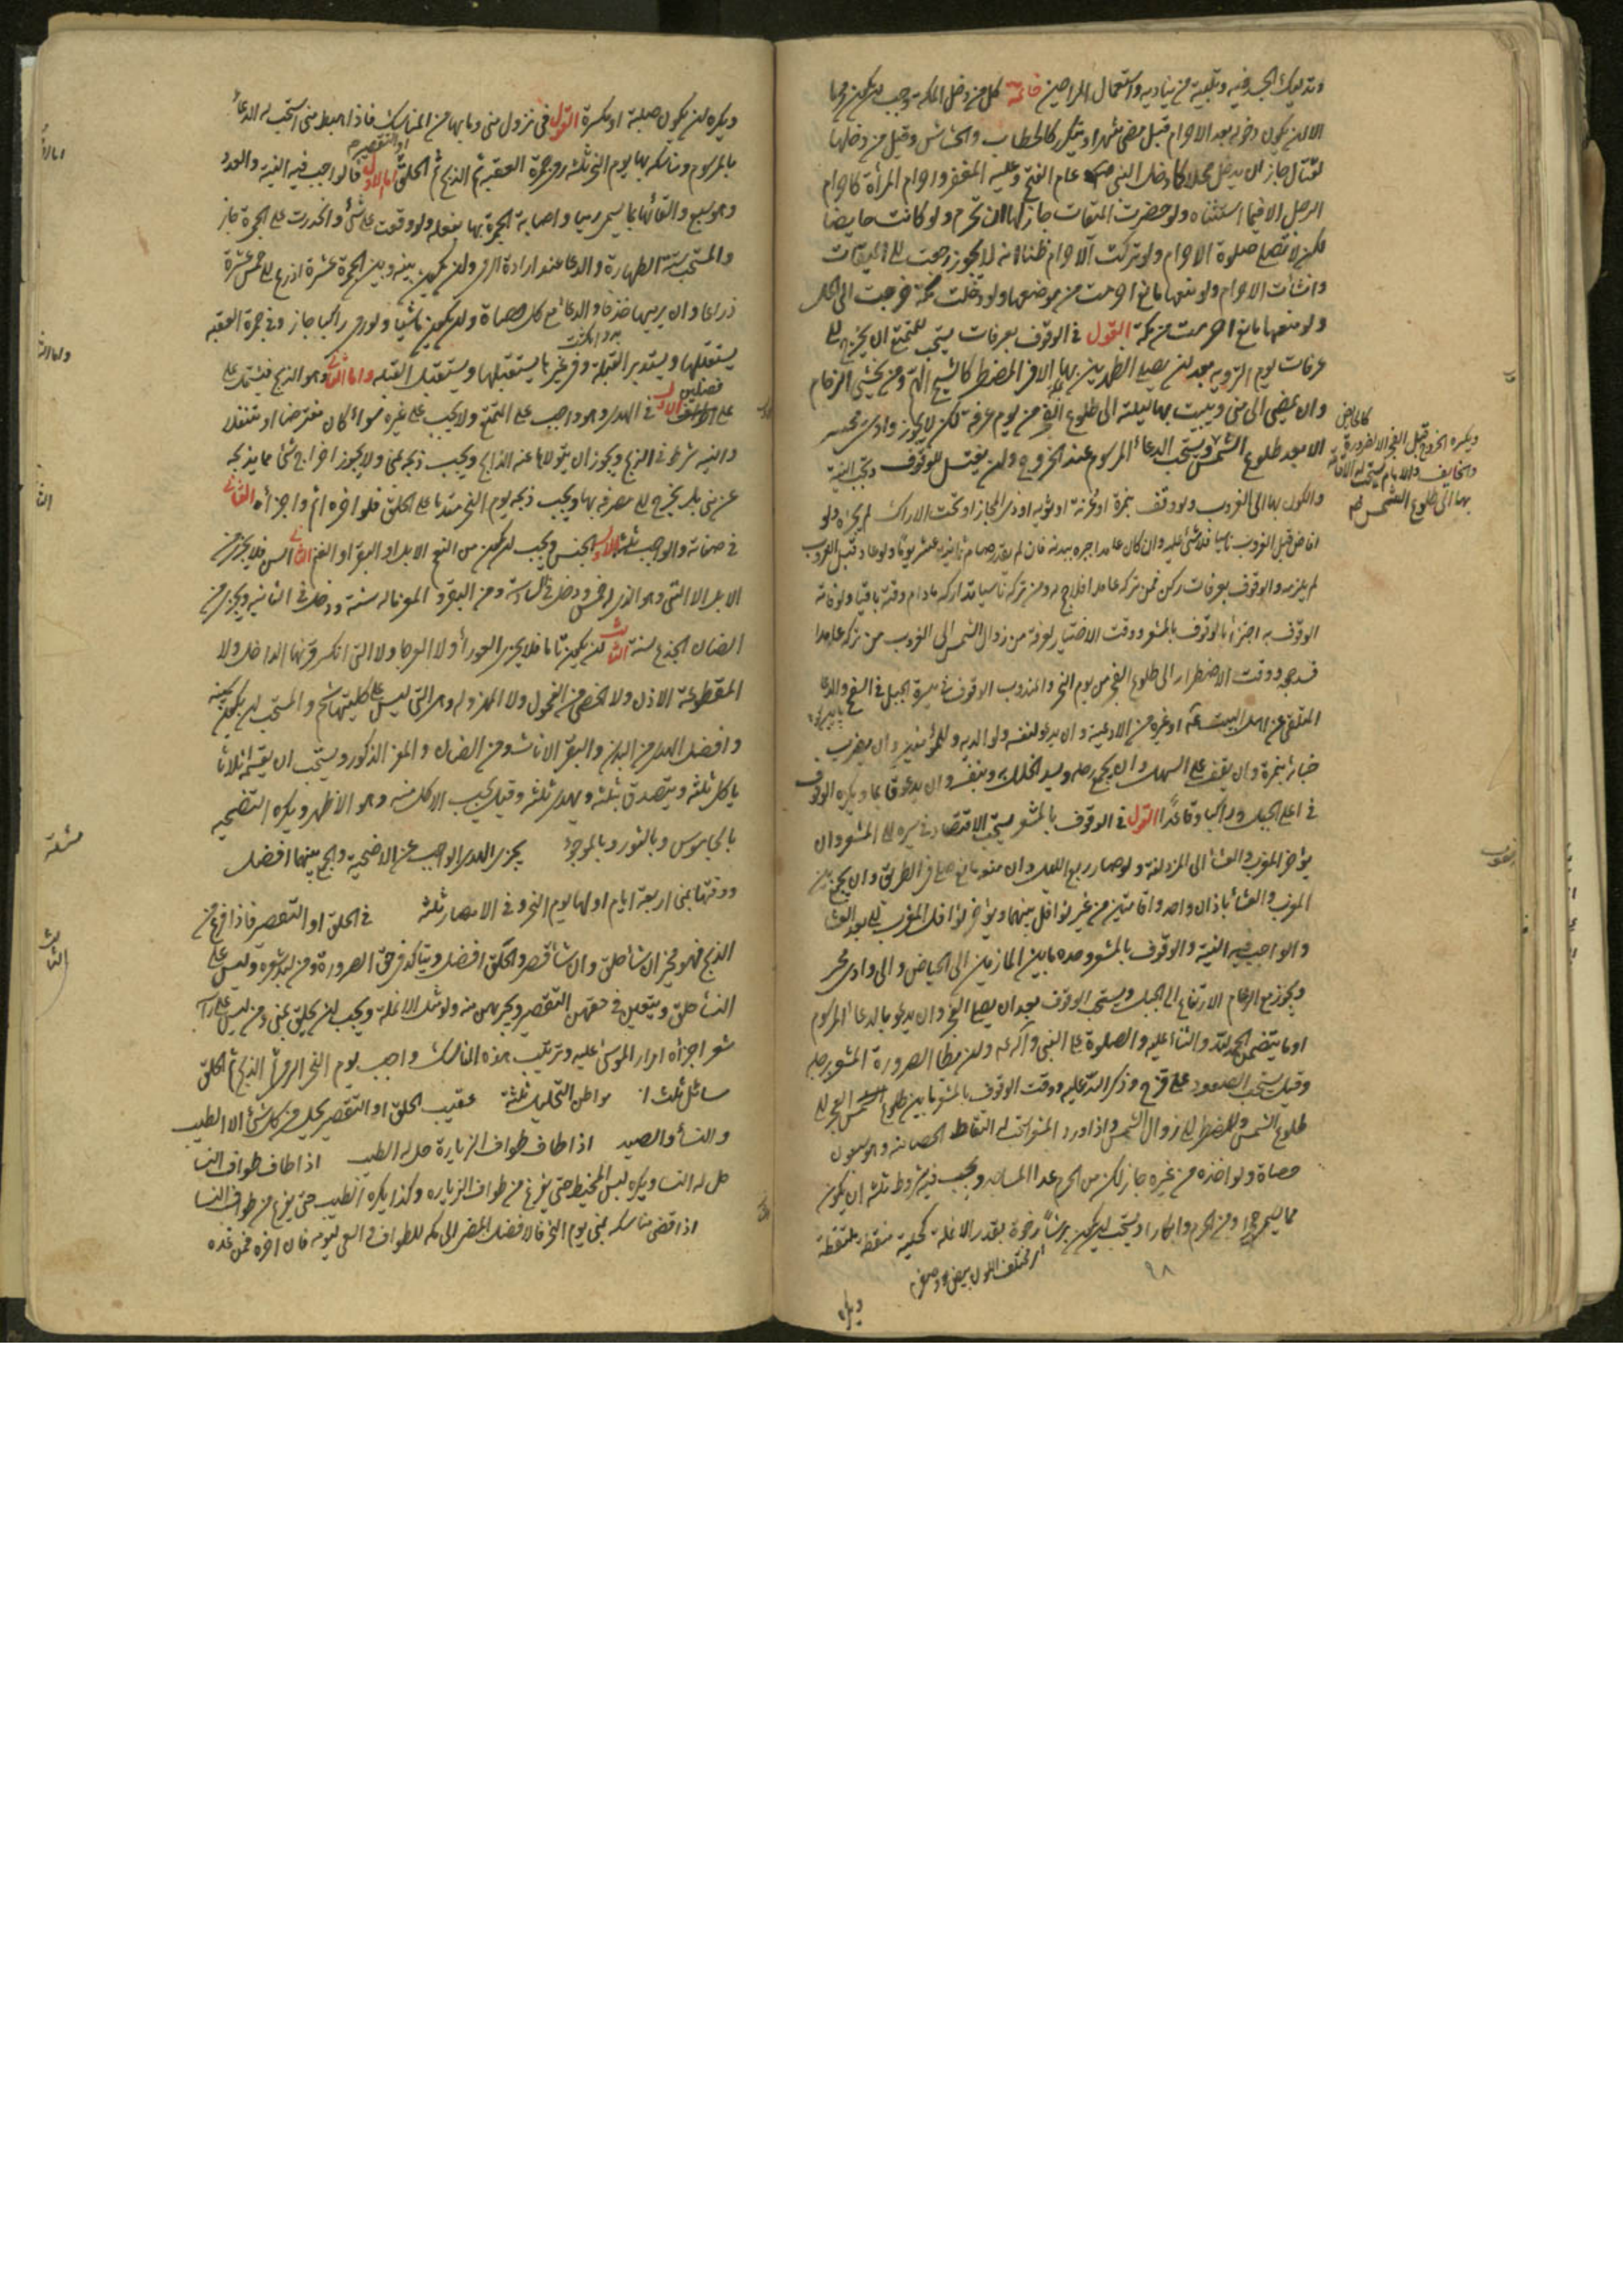 وتدليك الجسد فيه وتلبية من يناديه واستعمال الرياحين خاتمة كل من دخل مكة وجب ان يكون محرما
الا ان يكون دخوله بعد الاحرام قبل مضى شهر او يتكرر كالحطاب والحشاش وقيل من دخلها
لقتال جاز ان يدخل محلا كما دخل النبى عام الفتح وعليه المغفر واحرام المرأة كاحرام
الرجل الا فيما استثناه ولو حضرت الميقات جاز لها ان تحرم ولو كانت حايضا
لكن لا تصلى صلوة الاحرام ولو تركت الاحرام ظنا انه لا يجوز رجعت الى الميقات
وانشأت الاحرام ولو منعها مانع احرمت من موضعها ولو دخلت مكة خرجت الى الحل
ولو منعها مانع احرمت من مكة القول فى الوقوف بعرفات يستحب للمتمتع ان يخرج الى
عرفات يوم التروية بعد ان يصلى الظهرين بها الا فى المضطر كالشيخ الهم ومن يخشى الزحام
وان يمضى الى منى ويبيت بها ليلته الى طلوع الفجر من يوم عرفة لكن لا يجوز وادى محسر
الا بعد طلوع الشمس ويستحب الدعاء المرسوم عند الخروج وان يغتسل للوقوف وتجب النية
والكون بها الى الغروب ولو وقف بنمرة او عرنة او ثوية او ذى المجاز او تحت الاراك لم يجزه ولو
افاض قبل الغروب ناسيا فلا شئ عليه وان كان عامدا جبره ببدنة فان لم يقدر صام ثمانية عشر يوما ولو عاد قبل الغروب
لم يلزمه والوقوف بعرفات ركن فمن تركه عامدا فلا حج له ومن تركه ناسيا تداركه مادام وقته باقيا ولو فاته
الوقوف به اجتزأ بالوقوف بالمشعر ووقت الاختيار لعرفة من زوال الشمس الى الغروب من تركه عامدا
فسد حجه ووقت الاضطرار الى طلوع الفجر من يوم النحر والمندوب الوقوف فى ميسرة الجبل فى السفح والدعا
المتلقى عن اهل البيت او غيره من الادعية وان يدعو لنفسه ولوالديه وللمؤمنين وان يضرب
خباءه بنمرة وان يقف على السهل وان يجمع رحله ويسد الخلل به وبنفسه وان يدعو قايما ويكره الوقوف
فى اعلى الجبل وراكبا وقاعدا القول فى الوقوف بالمشعر يستحب الاقتصاد فى سيره الى المشعر وان
يؤخر المغرب والعشاء الى المزدلفة ولو صار ربع الليل وان منعه مانع صلى فى الطريق وان يجمع بين
المغرب والعشاء باذان واحد واقامتين من غير نوافل بينهما ويؤخر نوافل المغرب الى بعد العشاء
والواجب فيه النية والوقوف بالمشعر وحده ما بين المازمين الى الحياض والى وادى محسر
ويجوز مع الزحام الارتفاع الى الجبل ويستحب الوقوف بعد ان يصلى الفجر وان يدعو بالدعاء المرسوم
او ما يتضمن الحمد لله والثناء عليه والصلوة على النبى وآله وان يطأ الصرورة المشعر برجله
وقيل يستحب الصعود على قزح وذكر الله عليه ووقت الوقوف بالمشعر ما بين طلوع الفجر الى
طلوع الشمس وللمضطر الى زوال الشمس واذا ورد المشعر استحب له التقاط الحصا منه وهو سبعون
حصاة ولو اخذه من غيره جاز لكن من الحرم عدا المساجد ويجب فيه شروط ثلثة ان يكون
مما يسمى حجرا ومن الحرم وابكارا ويستحب ان يكون برشا رخوة بقدر الانملة كحلية منقطة ملتقطة
مختلف اللون
٩٨
ويكره
كالخايض
ويكره الخروج قبل الفجر الا لضرورة
والخايف والامام يستحب له الاقامة
بها الى طلوع الشمس
ويكره ان يكون صلبة او مكسرة القول فى نزول منى وما بها من المناسك فاذا هبط منى استحب له الدعاء
بالمرسوم ومناسكه بها يوم النحر ثلثة رمى جمرة العقبة ثم الذبح ثم الحلق او التقصير اما الاول فالواجب فيه النية والعدد
وهو سبع والقائها بما يسمى رميا واصابة الجمرة بها بفعله ولو وقعت على شئ وانحدرت على الجمرة جاز
والمستحب ستة الطهارة والدعا عند ارادة الرمى وان يكون بينه وبين الجمرة عشرة اذرع الى خمس عشرة
ذراعا وان يرميها خذفا والدعاء مع كل حصاة وان يكون ماشيا ولو رمى راكبا جاز وفى جمرة العقبة
يستقبلها ويستدبر القبلة وفى غيرها يستقبلها ويستقبل القبلة واما الثانى وهو الذبح فيشتمل على
فصلين
الاول فى الهدى وهو واجب على المتمتع ولا يجب على غيره سواء كان مفترضا او متنفلا
والنية شرط فى الذبح ويجوز ان يتولاها عنه الذابح ويجب ذبحه بمنى ولا يجوز اخراج شئ مما يذبحه
عن منى بل يخرج الى مصرفه بها ويجب ذبحه يوم النحر مقدما على الحلق فلو اخره اثم واجزأه الثانى
فى صفاته والواجب ثلثة الاول الجنس ويجب ان يكون من النعم الابل او البقر او الغنم الثانى السن فلا يجزى من
الابل الا الثنى وهو الذى له خمس ودخل فى السادسة ومن البقر والمعز ما له سنة ودخل فى الثانية ويجزى من
الضان الجذع لسنة الثالث ان يكون تاما فلا يجزى العوراء ولا العرجا ولا التى انكسر قرنها الداخل ولا
المقطوعة الاذن ولا الخصى من الفحول ولا المهزولة وهى التى ليس على كليتيها شحم والمستحب ان يكون سمينة
وافضل الهدى من البدن والبقر الاناث ومن الضان والمعز الذكور ويستحب ان يقسمه اثلاثا
ياكل ثلثه ويتصدق بثلثه ويهدى ثلثه وقيل يجب الاكل منه وهو الاظهر ويكره التضحية
بالجاموس وبالثور وبالموجوء يجزى الهدى الواجب عن الاضحية والجمع بينهما افضل
ووقتها بمنى اربعة ايام اولها يوم النحر وفى الامصار ثلثة فى الحلق او التقصير فاذا فرغ من
الذبح فهو مخير ان شاء حلق وان شاء قصر والحلق افضل ويتاكد فى حق الصرورة ومن لبد شعره وليس على
النساء حلق ويتعين فى حقهن التقصير ويجزيهن منه ولو مثل الانملة ويجب ان يحلق بمنى ومن ليس على راسه
شعر اجزأه امرار الموسى عليه وترتيب هذه المناسك واجب يوم النحر الرمى ثم الذبح ثم الحلق
مسائل ثلث ا مواطن التحليل ثلثة عقيب الحلق او التقصير يحل من كل شئ الا الطيب
والنساء والصيد اذا طاف طواف الزيارة حل له الطيب اذا طاف طواف النسا
حل له النسا ويكره لبس المخيط حتى يفرغ من طواف الزيارة وكذا يكره الطيب حتى يفرغ من طواف النسا
اذا قضى مناسكه بمنى يوم النحر فالافضل المضى الى مكه للطواف والسعى ليومه فان اخره فمن غده
مسئلة
الثالث